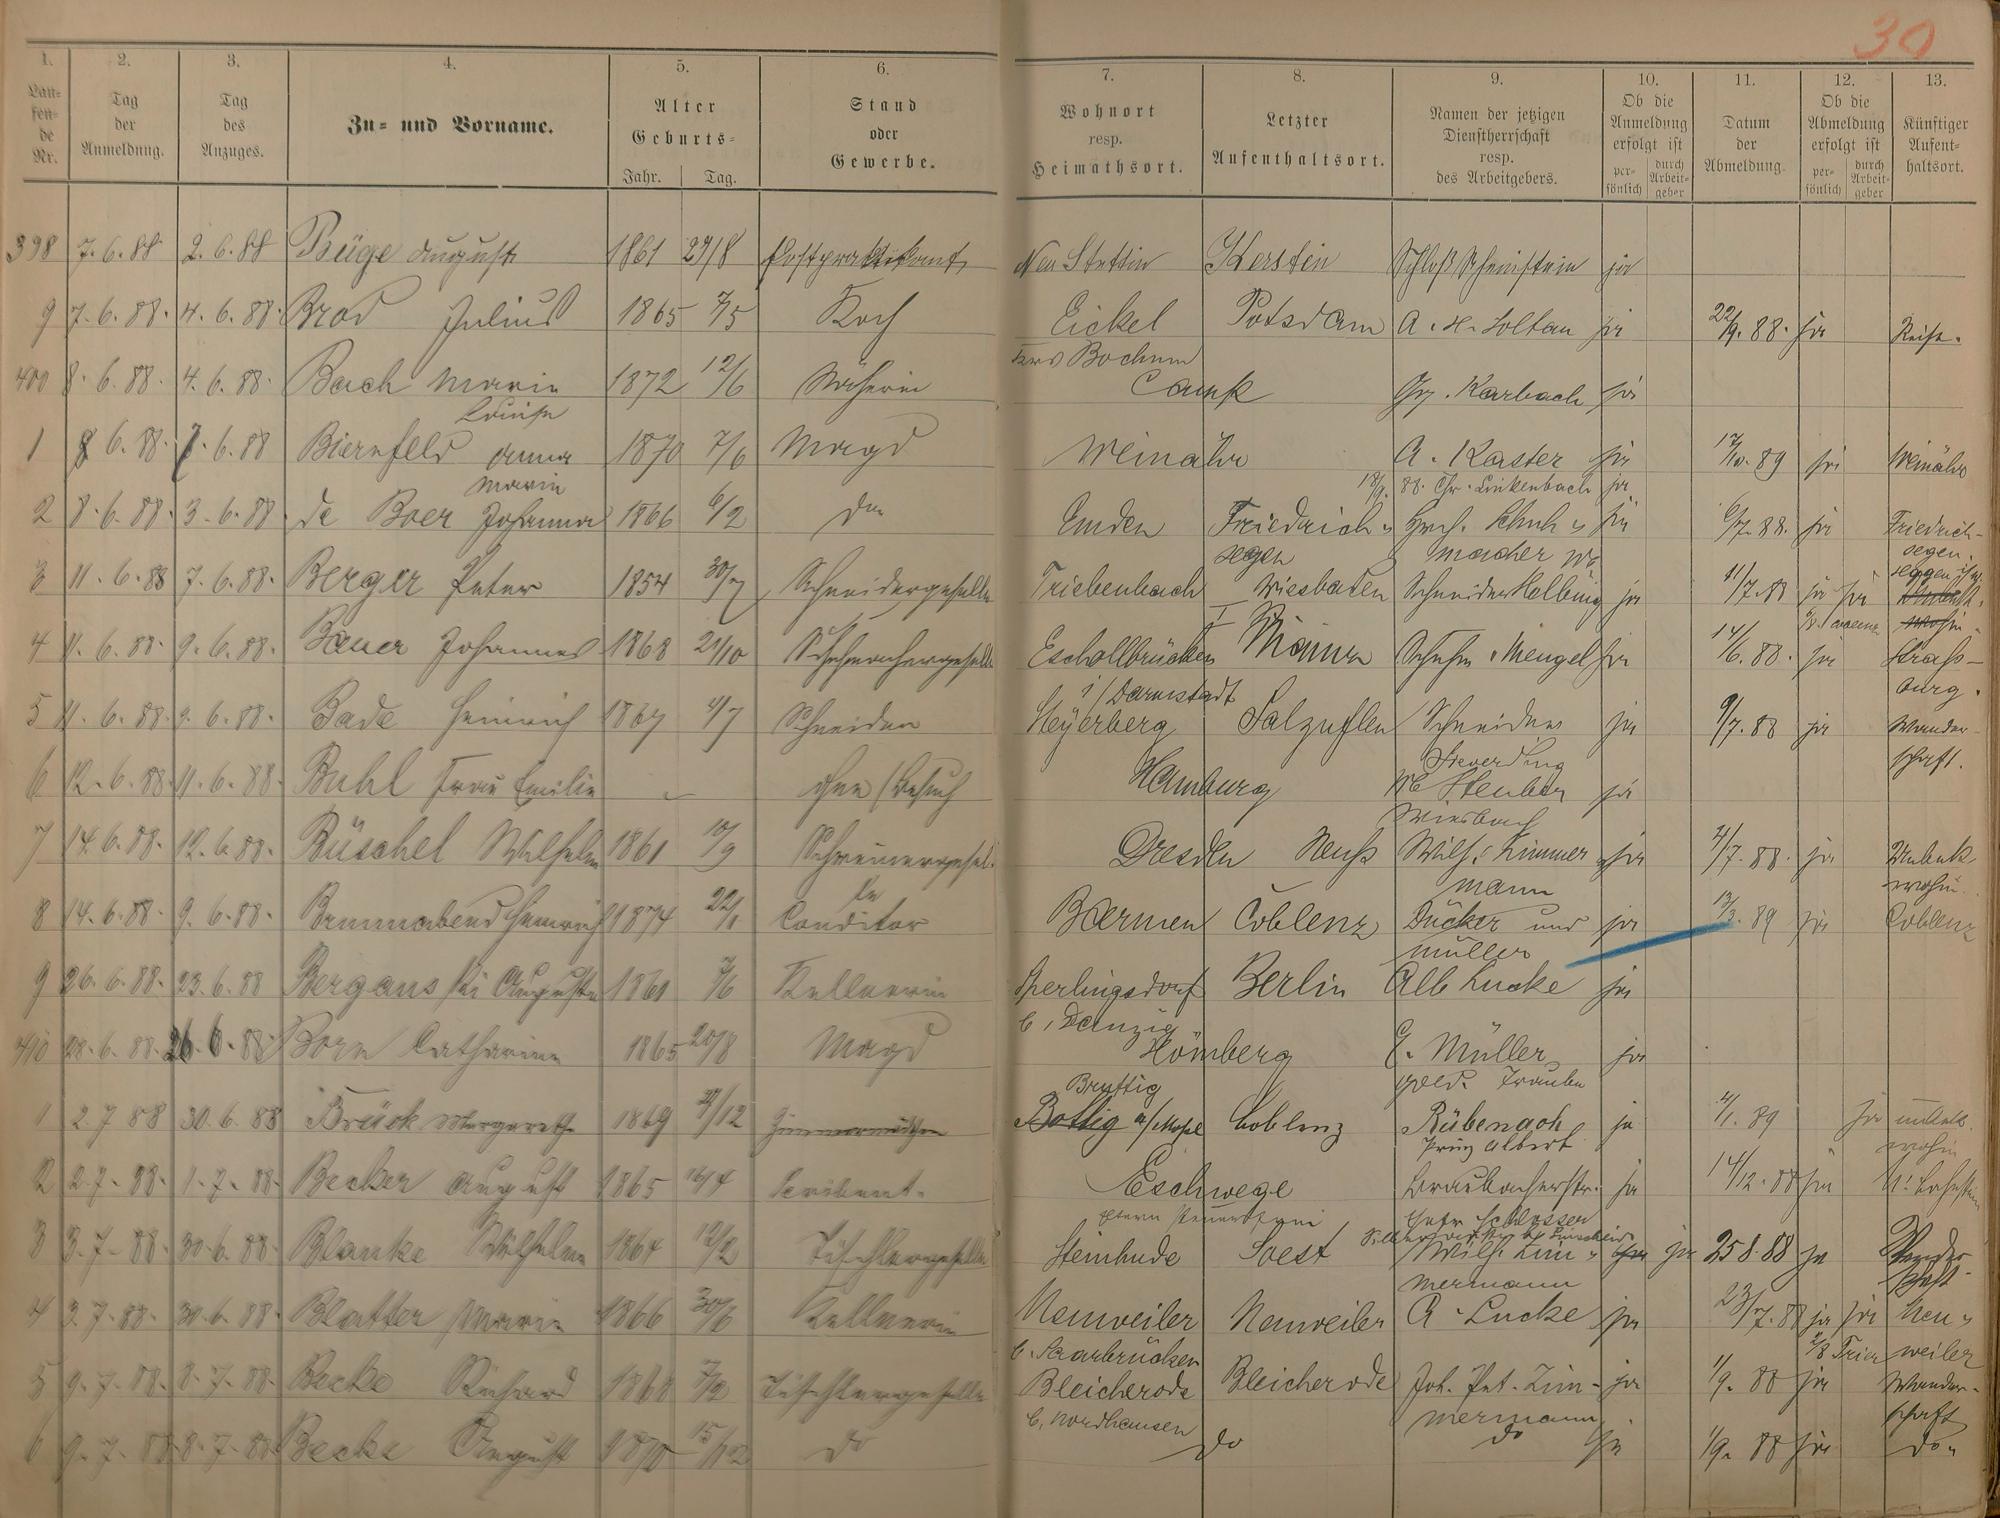 30
1. 2. 3. 4. 5. 6. 7. 8. 9. 10. 11. 12. 13.
Laufende Nr. Tag der Anmeldung. Tag des Anzuges. Zu- und Vorname. Alter Geburts- Jahr. Tag. Stand oder Gewerbe. Wohnort resp. Heimathsort. Letzter Aufenthaltsort. Namen der jetzigen Dienstherrschaft resp. des Arbeitgebers. Ob die Anmeldung erfolgt ist persönlich durch Arbeitgeber Datum der Abmeldung. Ob die Abmeldung erfolgt ist persönlich durch Arbeitgeber Künftiger Aufenthaltsort.
398 7.6.88 2.6.88 Büge August 1861 27/8 Postpraktikant Neu Stettin Schloß ja
9 7.6.88. 4.6.88. Brod Julius 1865 7/5 Koch Eickel Potsdam A. H. Soltau ja 22/9.88. ja Reise.
Krs Bochum
400 8.6.88. 4.6.88. Bach Marie 1872 12/6 Näherin Camp Gg. Karbach ja
Louise
1 8 6.88. 7.6.88 Bierfeld Anna 1870 7/6 Magd Weinähr A. Kaster ja 17/10.89 ja Weinähr
Marie 18/9. 88. Chr. Linkenbach ja
2 8.6.88. 3.6.88 de Boer Johanna 1866 6/2 do Emden Friedrich- Hrch. Schuh- ja 6/7.88. ja Friedrich-
segen macher We segen.
3 11.6.88 7.6.88. Berger Peter 1854 30/7 Schneidergeselle Triebenbach Wiesbaden Schneider Helbing ja 11/7.88 ja ja
4 11.6.88. 9.6.88. Bauer Johannes 1868 21/10 Schuhmachergeselle Eschollbrücken Mainz Schuhm. Mengel ja 14/6.88. ja Straß-
i/Darmstadt burg.
5 11.6.88. 9.6.88. Bade Heinrich 1867 4/7 Schneider Heyerberg Salzuflen Schneider ja 9/7.88 ja Wander-
Sieverding schaft.
6 12.6.88. 11.6.88. Buhl Frau Emilie - ohne (Besuch Hamburg We Steuber ja
Wiesbach
7 14.6.88. 12.6.88. Büschel Wilhelm 1861 10/9 Schreinergesel- Dresden Neuß Wilh. Zimmer- ja 4/7.88. ja Unbek.
le mann wohin.
8 14.6.88. 9.6.88. Brunnabend Heinrich 1874 22/1 Conditor Barmen Coblenz Dücker und ja 13/3.89 ja Coblenz
Müller
9 26.6.88. 23.6.88 Bergans Auguste 1861 7/6 Kellnerin Sperlingsdorf Berlin Alb Lucke ja
b. Danzig
410 28.6.88. 26.6.88 Born Catharine 1865 20/8 Magd Hömberg E. Müller ja
Bruttig gold. Traube
1 2 7 88 30.6.88 Brück Margarethe 1869 12 Zimmermädchen Bottig a/Mosel Coblenz Rübenach ja 4/1.89 ja unbek.
Prinz Albert wohin
2 2.7.88. 1.7.88. Becker August 1865 16/4 Scribent. Eschwege Braubacherstr. ja 14/12.88 ja N. Lahnstein
3 3.7.88. 30.6.88. Blanke Wilhelm 1864 12/2 Tischlergeselle Steinhude Soest Wilh. Zim- ja ja 25 8.88 ja Wander-
mermann schaft.
4 3.7.88. 30.6.88. Blatter Marie 1866 30/6 Kellnerin Neuweiler Neuweiler A. Lucke ja 23/7.88 ja ja Neu-
b. Saarbrücken 2/8 Trier weiler
5 9.7.88. 8.7.88. Becke Richard 1868 7/2 Tischlergeselle Bleicherode Bleicherode Joh. Pet. Zim- ja 1/9.88 ja Wander-
b. Nordhausen mermann schaft
6 9.7.88. 8.7.88. Becke August 1870 15/12 do do do ja 1/9.88 ja do.